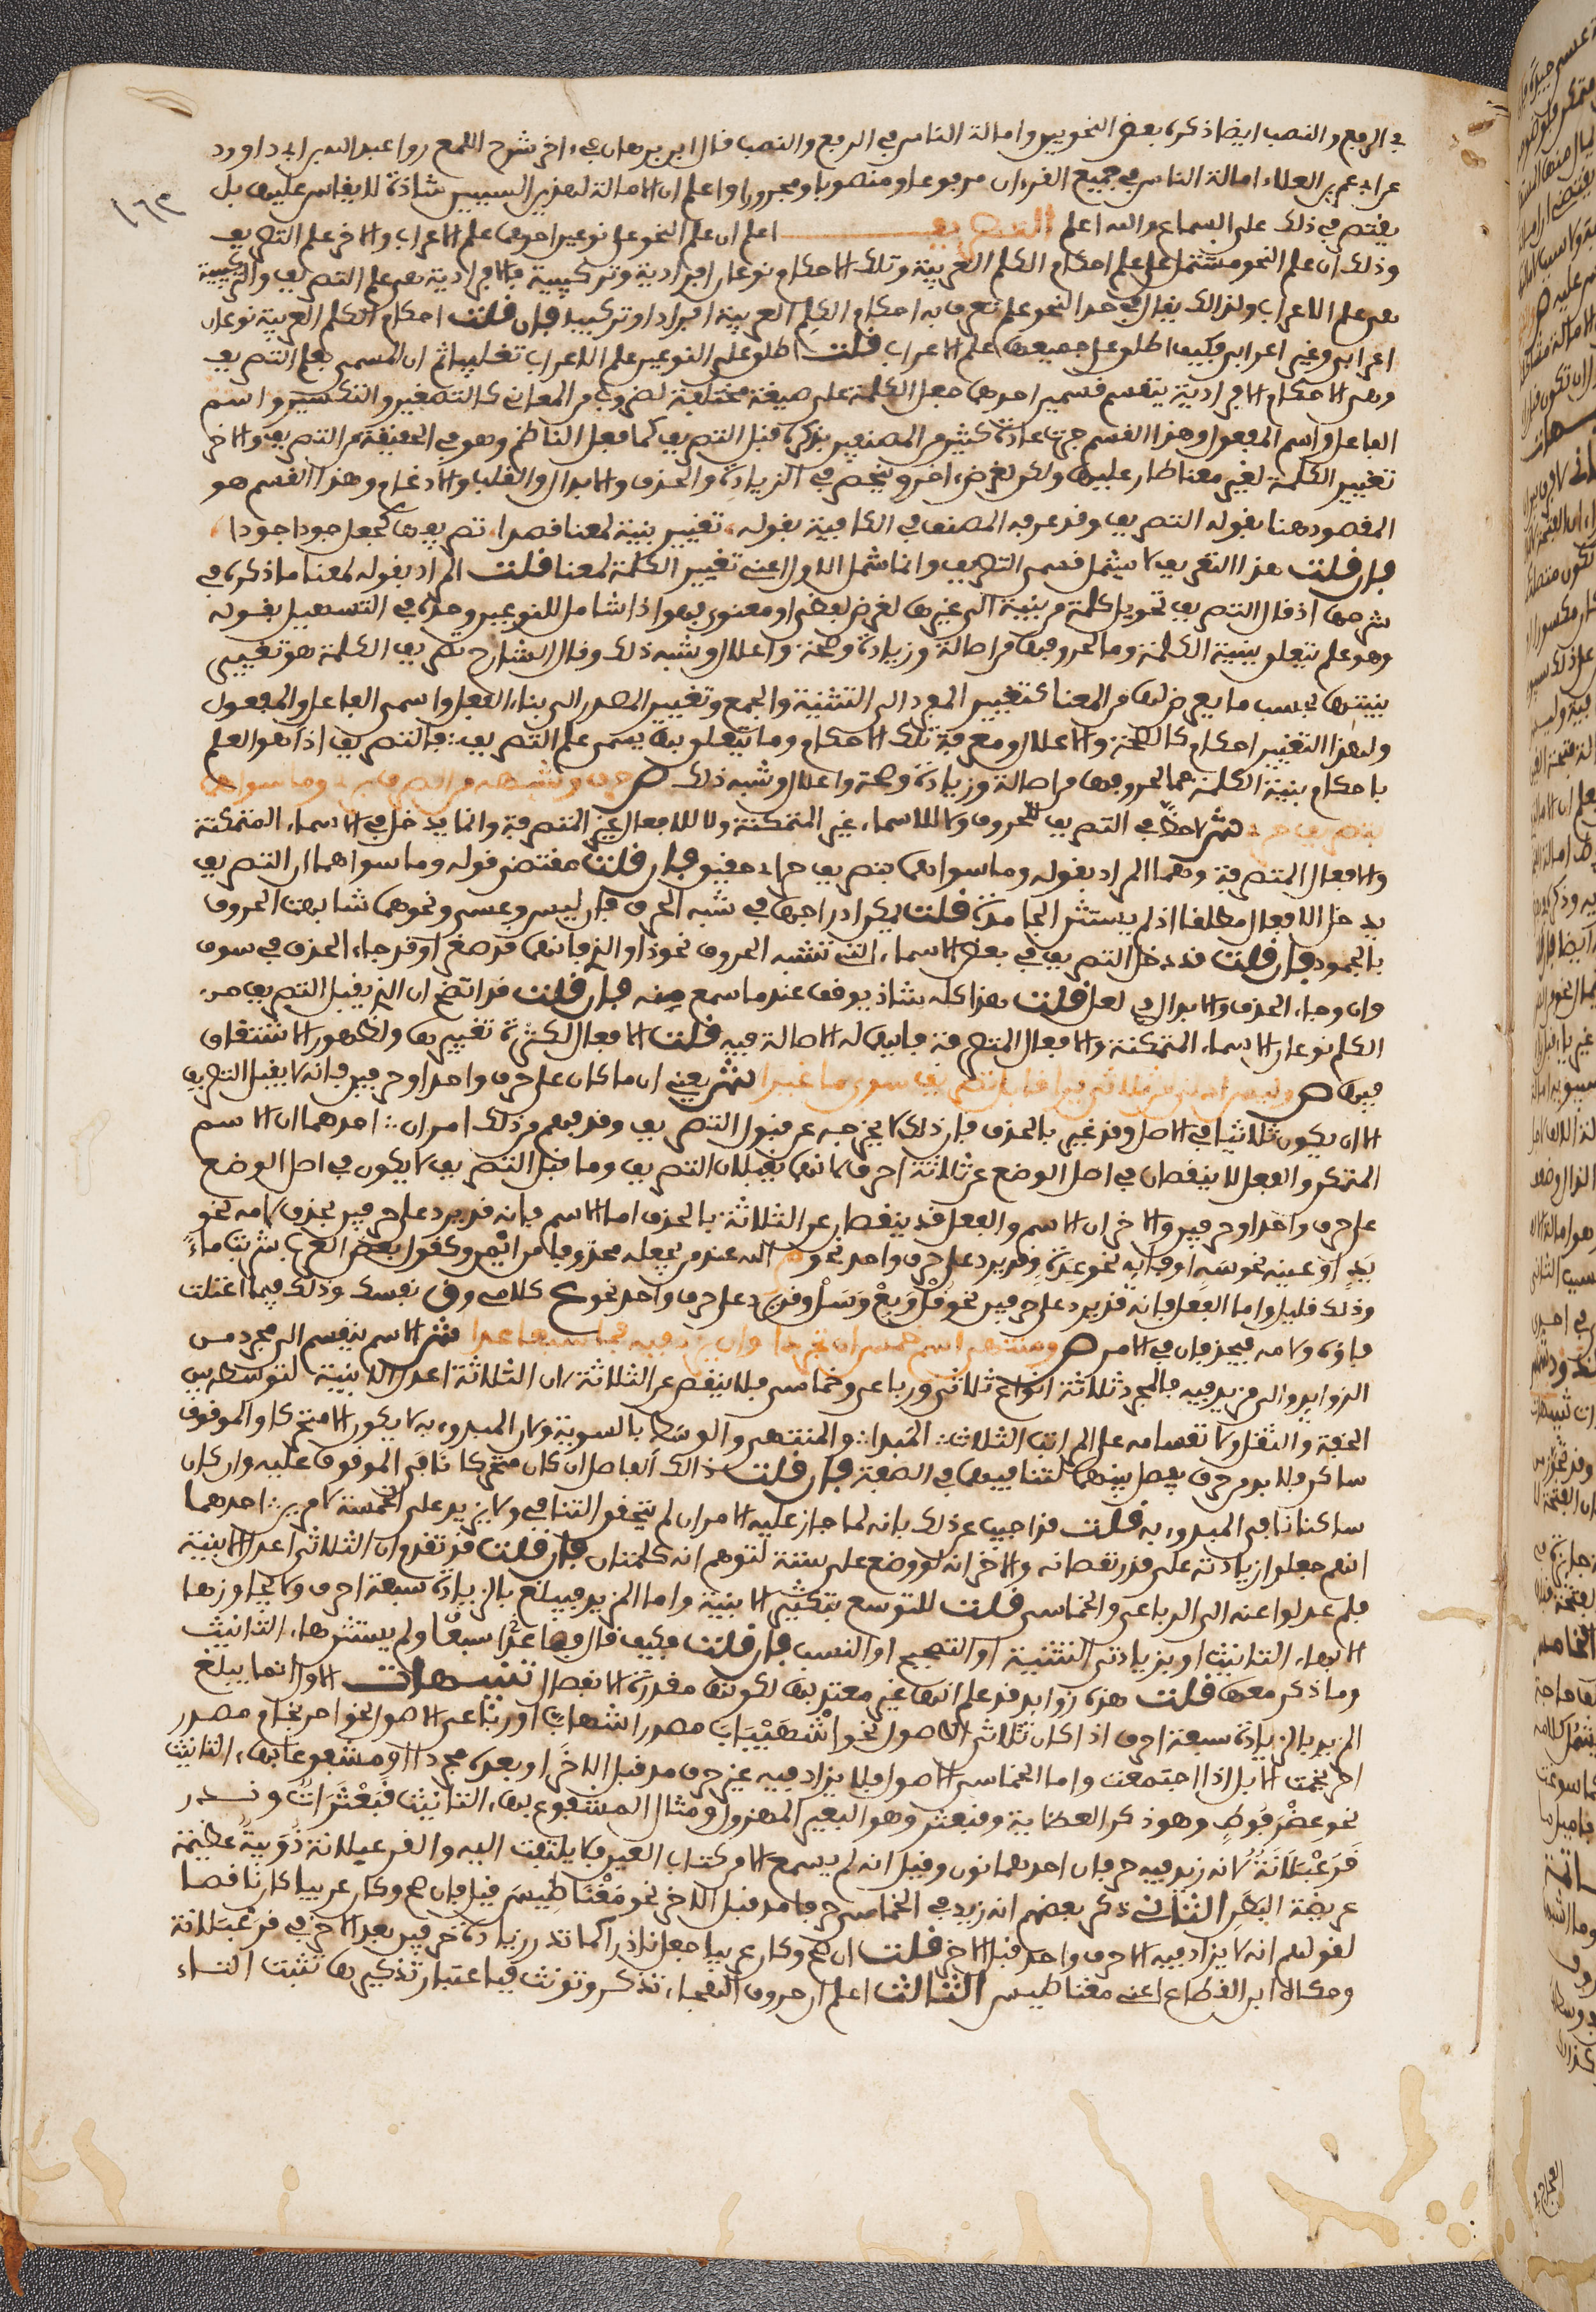 في الرفع والنصب ايضا ذكره بعض النحويين وامالة الناس في الرفع والنصب قال ابن برهان في ءاخر شرح اللمع روا عبد الله بن ابي داوود
عن ابي عمر بن العلاء امالة الناس في جميع القرءان مرفوعا ومنصوبا ومجرورا واعلم ان الامالة لهذين السببين شاذة لا يقاس عليها بل
١٦٣
يقتصر في ذلك على السماع والله اعلم التصريف اعلم ان علم النحو على نوعين احدهما علم الاعراب والاخر علم التصريف
وذلك ان علم النحو مشتمل على علم احكام الكلم العربية وتلك الاحكام نوعان افرادية وتركيبية فالافرادية هي علم التصريف والتركيبية
هي علم الاعراب ولذلك يقال في حد النحو علم تعرف به احكام الكلم العربية افرادا وتركيبا فإن قلت احكام الكلم العربية نوعان
اعرابي وغير اعرابي فكيف اطلق على جميعها علم الاعراب قلت اطلق على النوعين علم الاعراب تغليبا ثم ان المسمى بعلم التصريف
وهي الاحكام الافرادية ينقسم قسمين احدهما جعل الكلمة على صيغة مختلفة لضروب من المعاني كالتصغير والتكسير واسم
الفاعل واسم المفعول وهذا القسم جرت عادة كثير من المصنفين بذكره قبل التصريف كما فعل الناظم وهو في الحقيقة من التصريف والاخر
تغيير الكلمة لغير معنا طار عليها ولكن لغرض اخر وينحصر في الزيادة والحذف والابدال والقلب والادغام وهذا القسم هو
المقصود هنا بقوله التصريف وقد عرفه المصنف في الكافية بقوله تغيير بنية لمعنا قصدا تصريفها كجعل جود اجودا
فإن قلت هذا التعريف لا يشمل قسمي التصريف وانما شمل الاول اعني تغيير الكلمة لمعنا قلت المراد بقوله لمعنا ما ذكره في
شرحها اذ قال التصريف تحويل كلمة من بنية الى غيرها لغرض لفظي او معنوي فهو اذا شامل للنوعين وحده في التسهيل بقوله
وهو علم يتعلق ببنية الكلمة وما لحروفها من اصالة وزيادة وصحة واعلال وشبه ذلك وقال الشارح تصريف الكلمة هو تغيير
بنيتها بحسب ما يعرض لها من المعنا كتغيير المفرد الى التثنية والجمع وتغيير المصدر الى بناء الفعل واسمي الفاعل والمفعول
ولهذا التغيير احكام كالصحة والاعلال ومعرفة تلك الاحكام وما يتعلق بها يسمى علم التصريف فالتصريف اذا هو العلم
باحكام بنية الكلمة بما لحروفها من اصالة وزيادة وصحة واعلال وشبه ذلك ص حرف وشبهه من الصرف بري وما سواهما
بتصريف حري ش لا حظ في التصريف للحروف ولا للاسماء غير المتمكنة ولا للافعال غير المتصرفة وانما يدخل في الاسماء المتمكنة
والافعال المتصرفة وهما المراد بقوله وما سواهما بتصريف حرا اي حقيق فإن قلت مقتضى قوله وما سواهما ان التصريف
يدخل الافعال مطلقا اذ لم يستثن الجامدة قلت يمكن ادراجها في شبه الحرف فإن ليس وعسى ونحوهما شابهت الحروف
بالجمود فإن قلت قد دخل التصريف في بعض الاسماء التي تشبه الحروف نحو ذا والذي فانهما قد صغرا وقد جاء الحذف في سوف
وان وجاء الحذف والابدال في لعل قلت هذا كله شاذ يوقف عند ما سمع منه فإن قلت قد اتضح ان الذي يقبل التصريف من
الكلم نوعان الاسماء المتمكنة والافعال المتصرفة فايهما له الاصالة فيه قلت الافعال لكثرة تغييرها ولظهور الاشتقاق
فيها ص وليس ادنى من ثلاثي يرا قابل تصريف سوى ما غيرا ش يعني ان ما كان على حرف واحد او حرفين فانه لا يقبل التصريف
الا ان يكون ثلاثيا في الاصل وقد غير بالحذف فإن ذلك لا يخرجه عن قبول التصريف وقد فهم من ذلك امران احدهما ان الاسم
المتمكن والفعل لا ينقصان في اصل الوضع عن ثلاثة احرف لانهما يقبلان التصريف وما قبل التصريف لا يكون في اصل الوضع
على حرف واحد او حرفين والاخر ان الاسم والفعل قد ينقصان عن الثلاثة بالحذف اما الاسم فانه قد يرد على حرفين بحذف لامه نحو
يد او عينه نحو سه او فايه نحو عدة وقد يرد على حرف واحد نحو م الله عند من يجعله محذوفا من ايمن وكقول بعض العرب شربت ماء
وذلك قليل واما الفعل فانه قد يرد على حرفين نحو قل وبع وسل وقد يرد على حرف واحد نحو ع كلامي وق نفسك وذلك فيما اعتلت
فاؤه ولامه فيحذفان في الامر ص ومنتهى اسم خمس ان تجردا وان يزد فيه فما سبعا عدا ش الاسم ينقسم الى مجرد من
الزوايد والى مزيد فيه فالمجرد ثلاثة انواع ثلاثي ورباعي وخماسي فلا ينقص عن الثلاثة لان الثلاثة اعدل الابنية لتوسطه بين
الخفة والثقل ولانقسامه على المراتب الثلاث المبدا والمنتهى والوسط بالسوية ولان المبدوء به لا يكون الا متحركا والموقوف
ساكن فلا بد من حرف يفصل بينهما لتنافيهما في الصفة فإن قلت ذلك الفاصل ان كان متحركا نافى الموقوف عليه وان كان
ساكنا نافى المبدوء به قلت قد اجيب عن ذلك بانه لما جاز عليه الامران لم يتحقق التنافي ولا يزيد على الخمسة لامرين احدهما
انهم جعلوا زيادته على قدر نقصانه والاخر انه لو وضع على ستة لتوهم انه كلمتان فإن قلت قد تقدم ان الثلاثي اعدل الابنية
فلم عدلوا عنه الى الرباعي والخماسي قلت للتوسع بتكثير الابنية واما المزيد فيبلغ بالزيادة سبعة احرف ولا يجاوزها
الا بهاء التانيث او بزيادتي التثنية او التصحيح او النسب فإن قلت فكيف قال فما عدا سبعا ولم يستثن هاء التانيث
وما ذكر معها قلت هذه زوايد قد علم انها غير معتد بها لكونها مقدرة الانفصال تنبيهات الاول انما يبلغ
المزيد بالزيادة سبعة احرف اذا كان ثلاثي الاصول نحو اشهيباب مصدر اشهاب او رباعي الاصول نحو احرنجام مصدر
احرنجمت الابل اذا اجتمعت واما الخماسي الاصول فلا يزاد فيه غير حرف مد قبل الاخر او بعده مجردا او مشفوعا بهاء التانيث
نحو عضرفوط وهو ذكر العظاية وقبعثرى وهو البعير المهزول ومثال المشفوع بهاء التانيث قبعثراة وندر
قرعبلانة لانه زيد فيه حرفان احدهما نون وقيل انه لم يسمع الا من كتاب العين فلا يلتفت اليه والقرعبلانة دويبة عظيمة
عريضة البطن الثاني ذكر بعضهم انه زيد في الخماسي حرفا مد قبل الاخر نحو مغناطيس قيل فإن صح وكان عربيا كان ناقضا
لقولهم انه لا يزاد فيه الا حرف واحد قبل الاخر قلت ان صح وكان عربيا جعل نادرا كما ندر زيادة حرفين بعد الاخر في قرعبلانة
وحكاه ابن القطاع اعني مغناطيس الثالث اعلم ان حروف الهجاء تذكر وتؤنث فباعتبار تذكيرها تثبت التاء